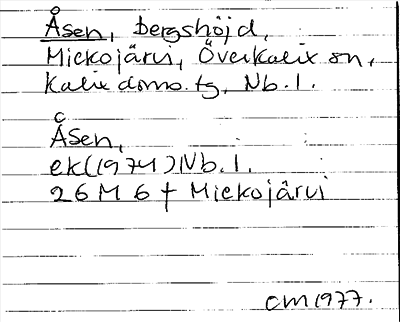 Åsen, bergshöjd,
Miekojärvi, Överkalix sn,
Kalix doms.tg, Nb.l.
Åsen,
ek(1974)Nb.l.
26 M 6 f Miekojärvi
CM 1977.